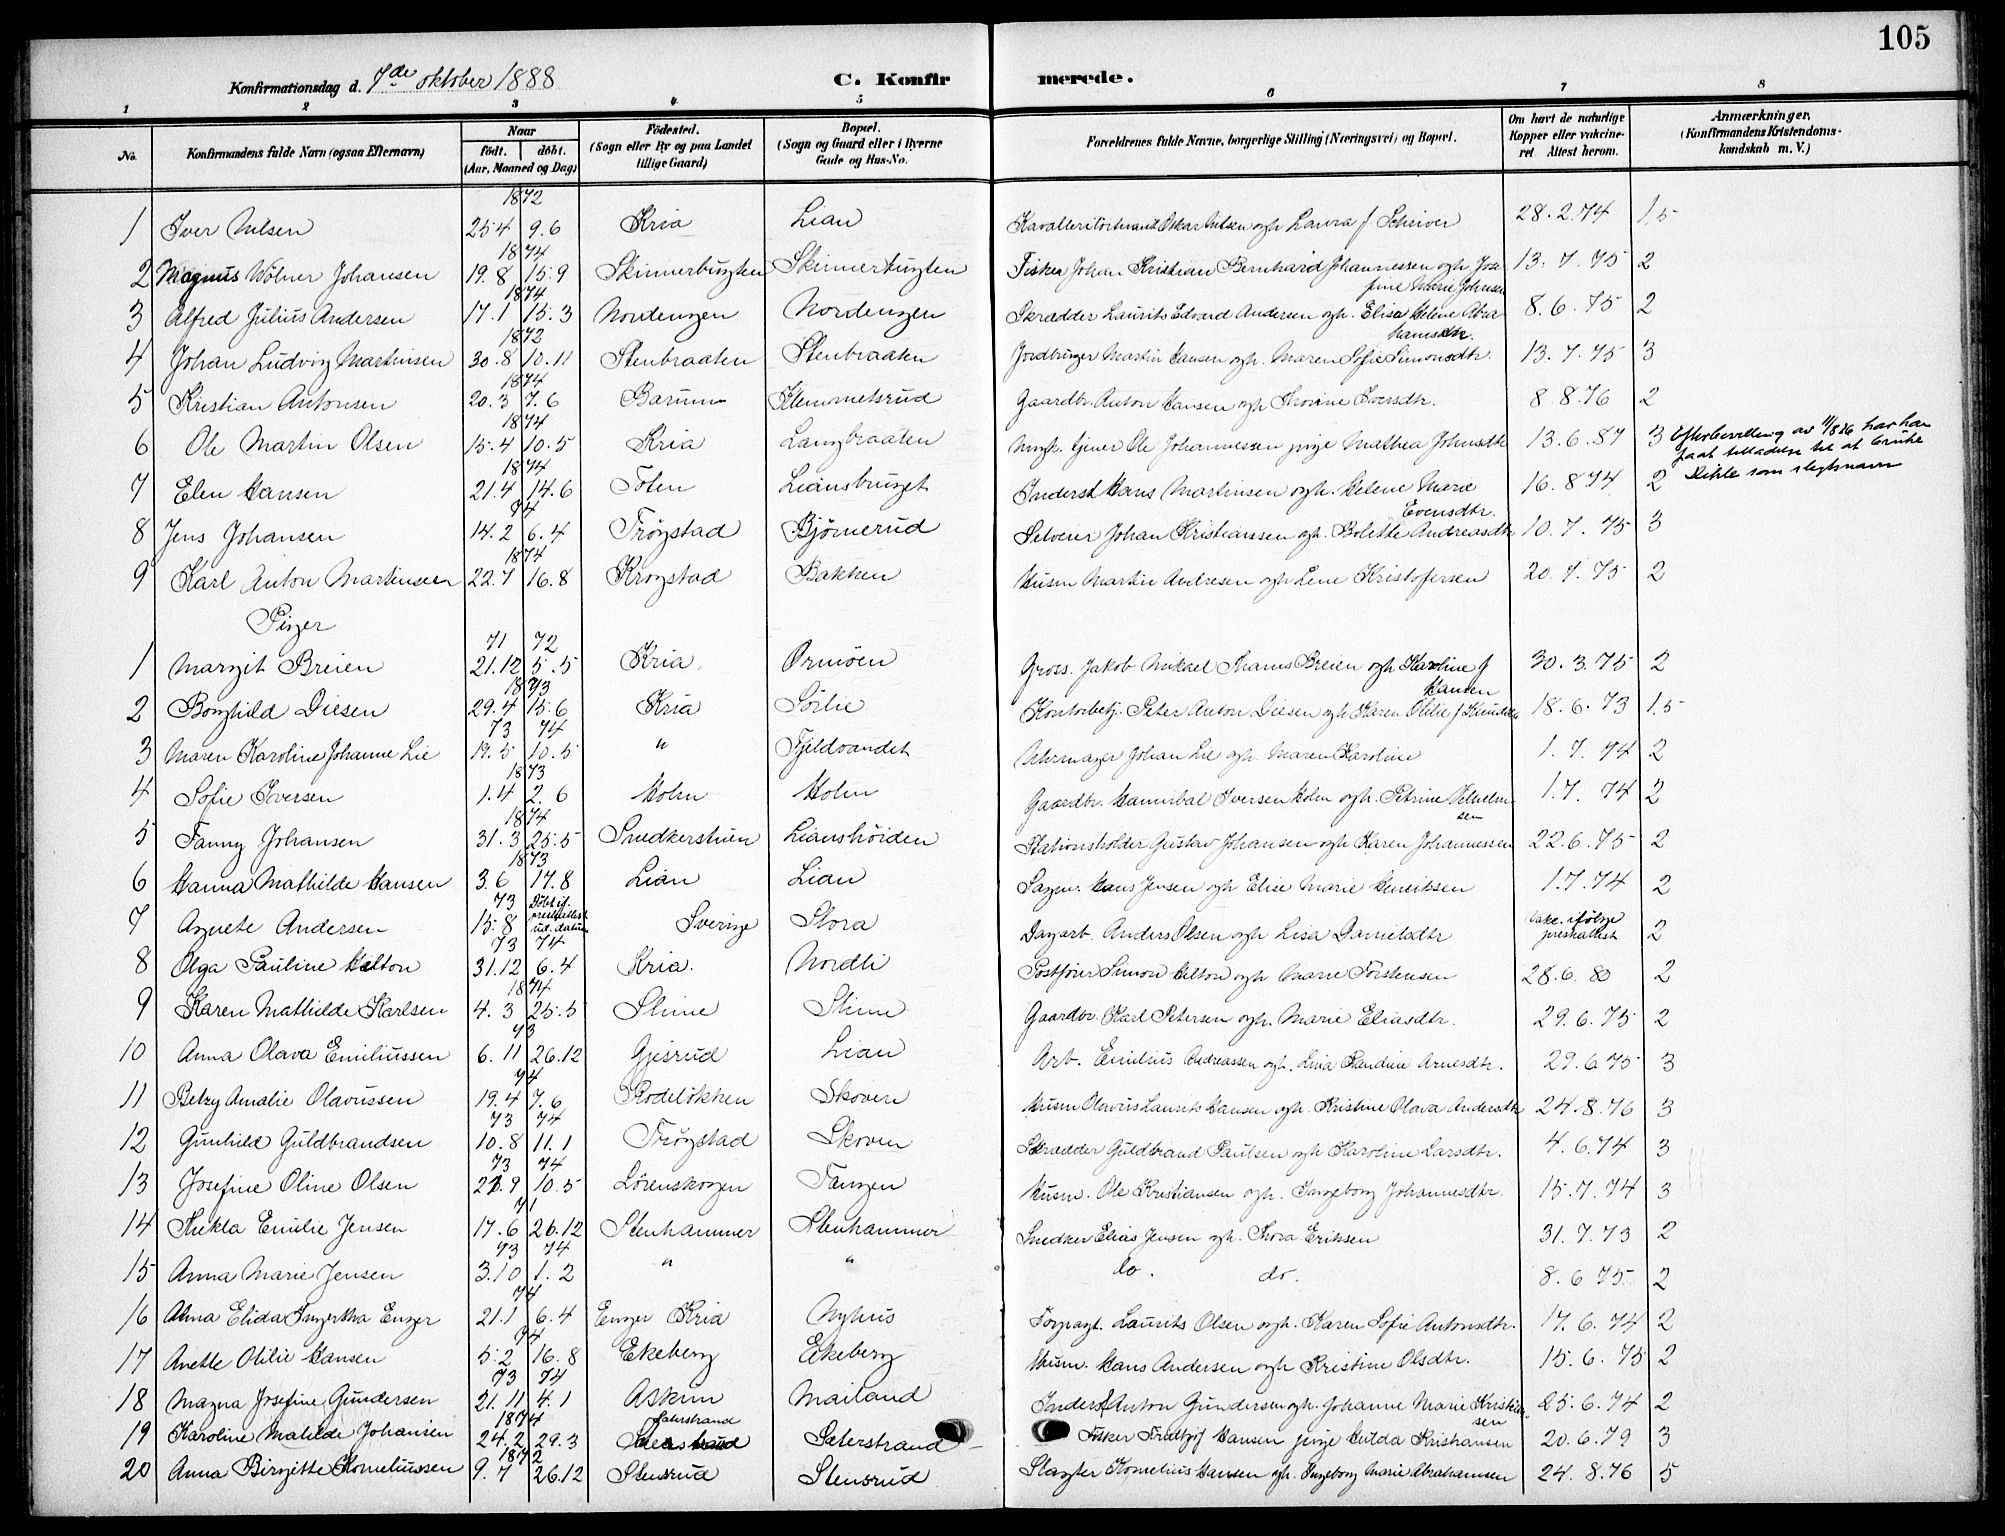 105
Konfirmationsdag d. 7de oktober 1888 C. Konfirmerede.
1 2 3 4 5 6 7 8
No. Konfirmandens fulde Navn (ogsaa Efternavn) Naar født. døbt. (Aar, Maaned og Dag) Fødested. (Sogn eller By og paa Landet tillige Gaard) Bopæl. (Sogn og Gaard eller i Byerne Gade og Hus-No. Forældrenes fulde Navne, borgerlige Stilling (Næringsvei) og Bopæl. Om havt de naturlige Kopper eller vakcineret Attest herom. Anmærkninger, (Konfirmandens Kristendomskundskab m. V.)
1872
1 Iver Nilsen 25 4 9.6 Kria Lian Oskar Nilsen ogh Laura f Schriver 28.2.74 1,5
1874
2 Magnus Wolner Johansen 19.8 15.9 Skinnerbugten Skinnerbugten Fisker Johan Kristian Bernhard Johannessen ogh Josefine Marie Johnsen 13.7.75 2
1874
3 Alfred Julius Andersen 17.1 15.3 Nordengen Nordengen Skrædder Laurits Edvard Andersen ogh. Elisa Helene Abrahamsdtr. 8.6.75 2
1872
4 Johan Ludvig Martinsen 30.8 10.11 Stenbraaten Stenbraaten Jordbruger Martin Hansen ogh. Maren Sofie Simonsdtr. 13.7.75 3
1874
5 Kristian Antonsen 20.3 7.6 Bærum Klemmetsrud Gaardbr. Anton Hansen ogh Thorine Iversdtr. 8 8.76 2
1874
6 Ole Martin Olsen 15.4 10.5 Kria Langbraaten Ungk. Ole Johannessen pige Mathea Johnsdtr 13.6.87 3 har han faat tilladelse til at bruke som slegtsnavn
1874
7 Elen Hansen 21.4 14.6 Toten Liansbruget Inderst Hans Martinsen ogh. Helene Marie Evensdtr. 16.8 74 2
74
8 Jens Johansen 14.2 6.4 Trøgstad Bjørnerud Selveier Johan Kristianssen ogh. Bolette Andreasdtr 10.7.75 3
1874
9 Karl Anton Martinsen 22.7 16.8 Krogstad Bakken Husm Martin Andresen ogh Lene Kristofersen 20.7.75 2
Piger
71 72
1 Margit Breien 21.12 5.5 Kria. Ormøen Gross. Jakob Mikael Thams Breien ogh Karoline f Hansen 30.3.75 2
1873
2 Borghild Diesen 29.4 15.6 Kria Sørlie Kontorbetj. Peter Anton Diesen ogh Karen Otilie f 18.6.73 1.5
73 74
3 Maren Karoline Johanne Lie 19.5 10.5 " Fjeldvandet Uhrmager Johan Lie ogh. Maren Karoline 1.7.74 2
1873
4 Sofie Iversen 1.4 2.6 Holm Holm Gaardbr. Hannibal Iversen Holm ogh. Petrine Vilhelmsen 1.7.74 2
1874
5 Fanny Johansen 31.3 25.5 Snedkerstuen Lianshøiden Stationsholder Gustav Johansen ogh Karen Johannessen 22.6.75 2
1873
6 Hanna Mathilde Hansen 3.6 17.8 Lian Lian Sagm. Hans Jensen ogh Elise Marie Henriksen 1.7.74 2
73
7 Agnete Andersen 15.8 Døbt if. prestattest ud. datum Sverige Stora Dagarb. Anders Olsen ogh Lisa Danielsdtr Vakc. ifølge prestattest 2
73 74
8 Olga Pauline Helton 31.12 6.4 Kria. Nordli Postfører Simon Helton ogh Marie Torstensen 28.6.80 2
1874
9 Karen Mathilde Karlsen 4.3 25.5 Slime Slime Gaardbr. Karl Petersen ogh. Marie Eliasdtr. 29.6.75 2
73
10 Anna Olava Emiliussen 6.11 26.12 Gjisrud Lian Arb. Emilius Andreassen ogh. Lina Randine Arnesdtr. 29.6 75 3
74
11 Betzy Amalie Olavussen 19.4 7.6 Rodeløkken Skoven Husm Olavus Laurits Hansen ogh. Kristine Olava Andersdtr 24.8.76 3
73 74
12 Gunhild Guldbrandsen 10.8 11.1 Trøgstad Skoven Skrædder Guldbrand Paulsen ogh Karoline Larsdtr. 4.6.74 3
73 74
13 Josefine Oline Olsen 21.9 10.5 Lørenskogen Tangen Husm. Ole Kristiansen ogh. Ingeborg Johannesdtr. 15.7.74 3
71
14 Thekla Emilie Jensen 17.6 26.12 Stenhammer Stenhammer Snedker Elias Jensen ogh. Thora Eriksen 31.7.73 2
73 74
15 Anna Marie Jensen 3.10 1.2 " " do. do. 8.6 75 2
74
16 Alma Elida Ingertha Enger 21.1 6.4 Enger Kria Nyhus Laurits Olsen ogh. Karen Sofie Antonsdtr. 17.6.74 2
74
17 Anette Otilie Hansen 5.2 16.8 Ekeberg Ekeberg Husm. Hans Andersen ogh Kristine Olsdtr. 15.6.75 2
73 74
18 Magna Josefine Gundersen 21.11 4.1 Askim Mailand Inderst Anton Gundersen ogh. Johanne Marie Kristiansen 25.6.74 2
1874
19 Karoline Matilde Johansen 24.2 29.3 Saterstrand Saterstrand Fisker Fredtjof Hansen pige Hulda Kristiansen 20.6.79 3
1872
20 Anna Birgitte Korneliussen 9.7 26.12 Stensrud Stensrud Slagter Kornelius Hansen ogh. Ingeborg Marie Abrahamsen 24.8.76 5